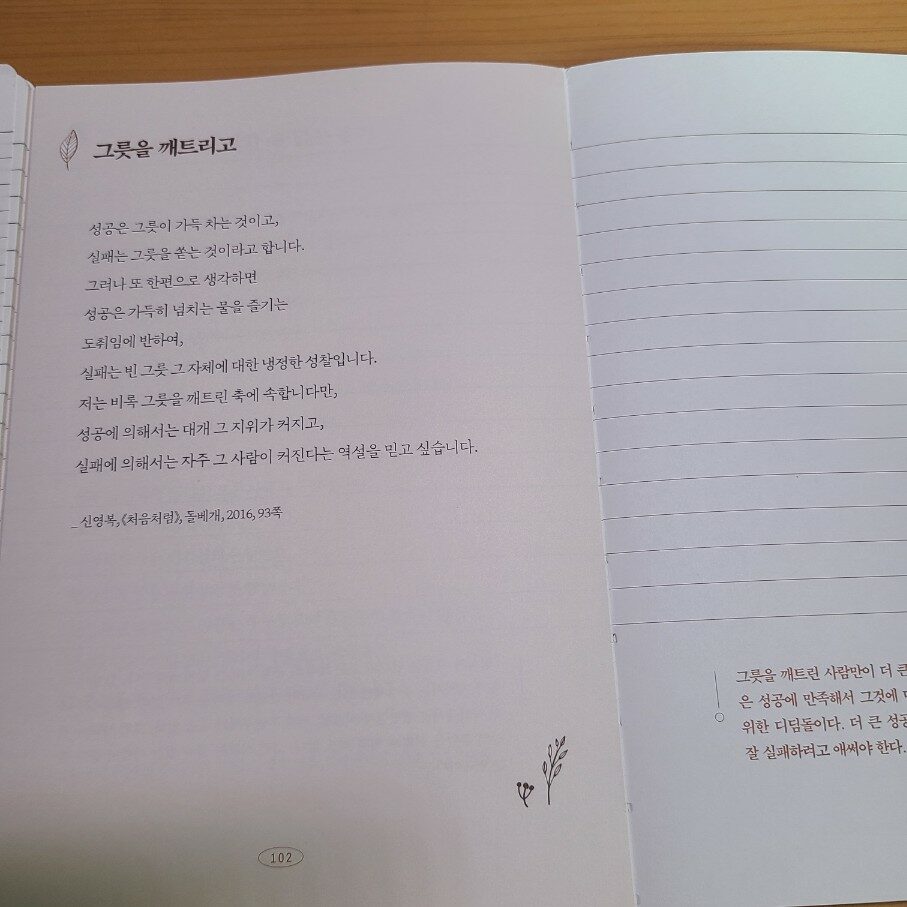 그릇을 깨트리고
성공은 그릇이 가득 차는 것이고,
실패는 그릇을 쏟는 것이라고 합니다.
그러나 또 한편으로 생각하면
성공은 가득히 넘치는 물을 즐기는
도취임에 반하여,
실패는 빈 그릇 그 자체에 대한 냉정한 성찰입니다.
저는 비록 그릇을 깨트린 축에 속합니다만,
성공에 의해서는 대개 그 지위가 커지고,
실패에 의해서는 자주 그 사람이 커진다는 역설을 믿고 싶습니다.
_ 신영복, 《처음처럼》, 돌베개, 2016, 93쪽
102
그릇을 깨트린 사람만이 더 큰
은 성공에 만족해서 그것에
위한 디딤돌이다. 더 큰
잘 실패하려고 애써야 한다.